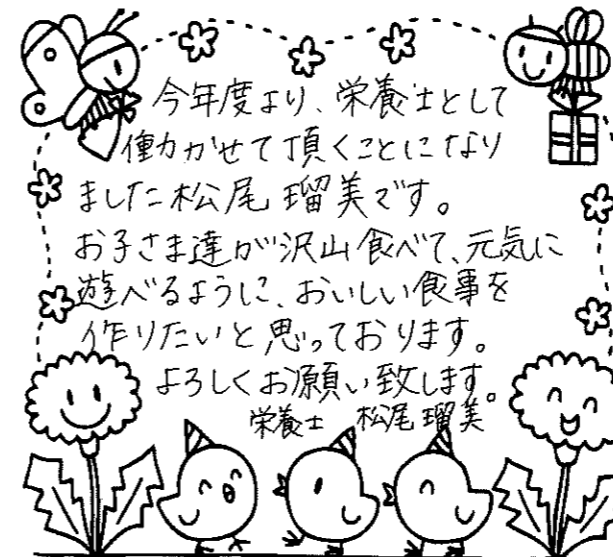 今年度より、栄養士として
働かせて頂くことになり
ました松尾 瑠美です。
お子さま達が沢山食べて、元気に
遊べるように、おいしい食事を
作りたいと思っております。
よろしくお願い致します。
栄養士 松尾瑠美